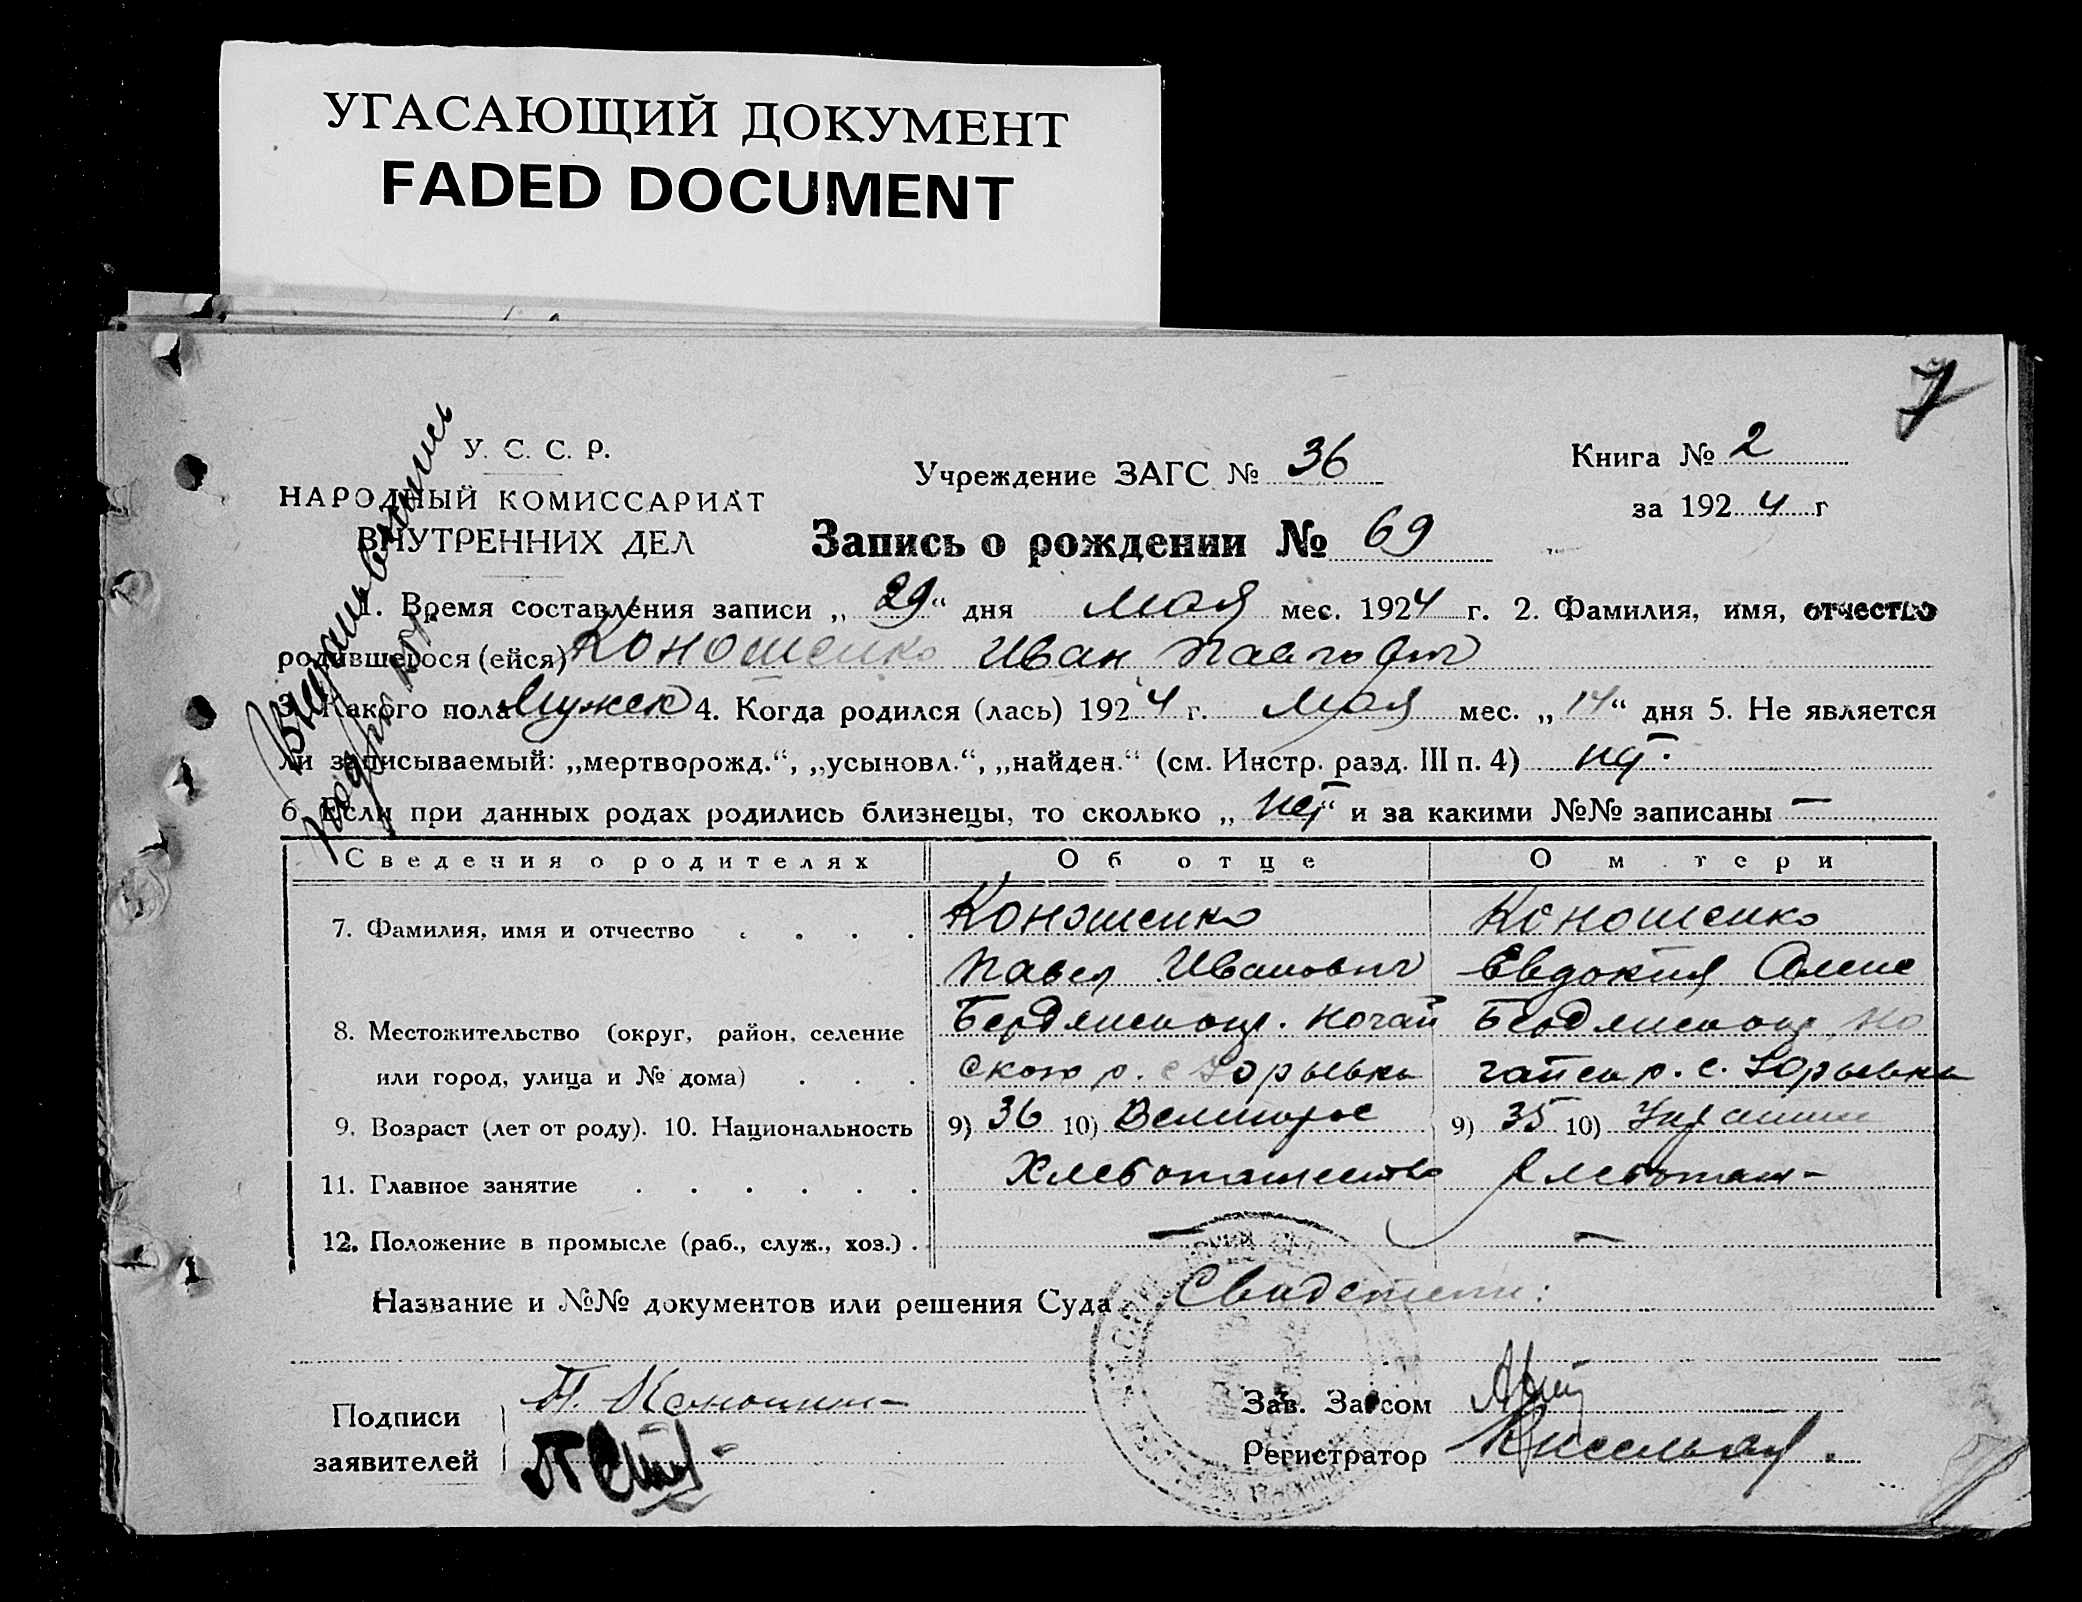 УГАСАЮЩИЙ ДОКУМЕНТ
FADED DOCUMENT
7
У. С. С. Р.
НАРОДНЫЙ КОМИССАРИАТ
ВНУТРЕННИХ ДЕЛ
Учреждение ЗАГС № 36
Книга № 2
за 1924 г
Запись о рождении № 69
1. Время составления записи „29“ дня мая мес. 1924 г. 2. Фамилия, имя, отчество
родившегося (ейся) Коношенко Иван Павлович
3. Какого пола Мужск 4. Когда родился (лась) 1924 г. мая мес. „14“ дня 5. Не является
ли записываемый: „мертворожд.“, „усыновл.“, „найден.“ (см. Инстр. разд. III п. 4) нет.
6. Если при данных родах родились близнецы, то сколько „нет“ и за какими №№ записаны —
Сведения о родителях Об отце О м тери
7. Фамилия, имя и отчество . . . . Коношенко Коношенко
Павел Иванович Евдокия
8. Местожительство (округ, район, селение Бердянск окр. Ногай Бердянск окр. Но
или город, улица и № дома) . . . ского р. с Юрьевка гайск р. с. Юрьевка
9. Возраст (лет от роду). 10. Национальность 9) 36 10) Великорос 9) 35 10)
11. Главное занятие . . . . . . Хлебопашество Хлебопаш-
12. Положение в промысле (раб., служ., хоз.) . — —
Название и №№ документов или решения Суда Свидетели:
Подписи
заявителей
П.
Зав. Загсом
Регистратор